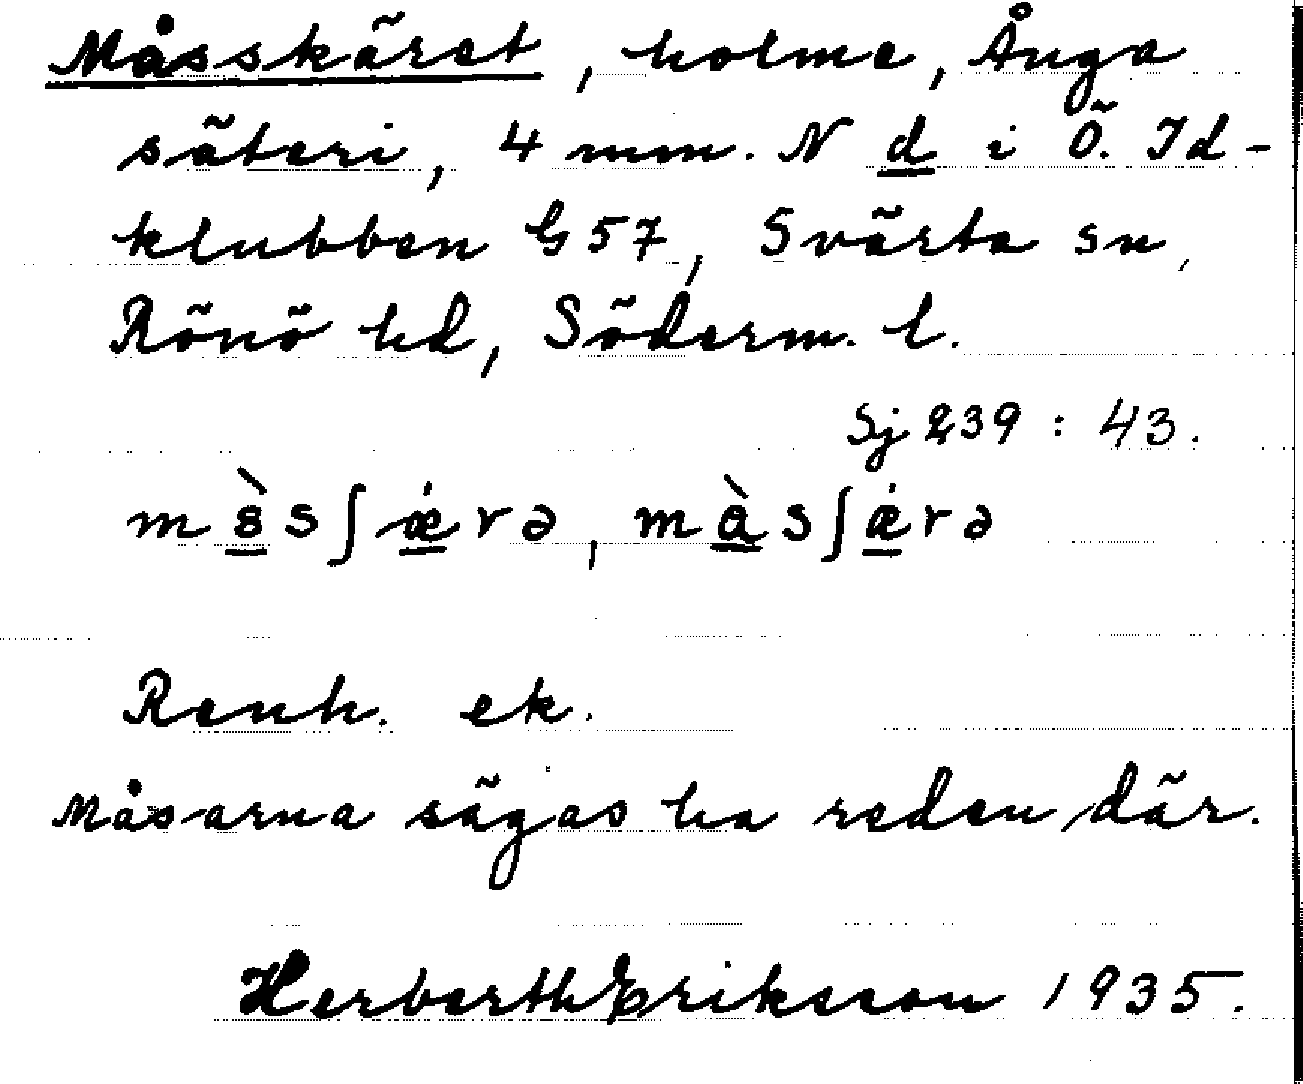 Måsskäret, holme, Ånga
säteri, 4 mm. N d i Ö. Id-
klubben G57, Svärta sn,
Rönö hd, Söderm. l.
Sj 239 : 43.
Renh. ek.
Måsarna sägas ha reden där.
Herberth Eriksson 1935.